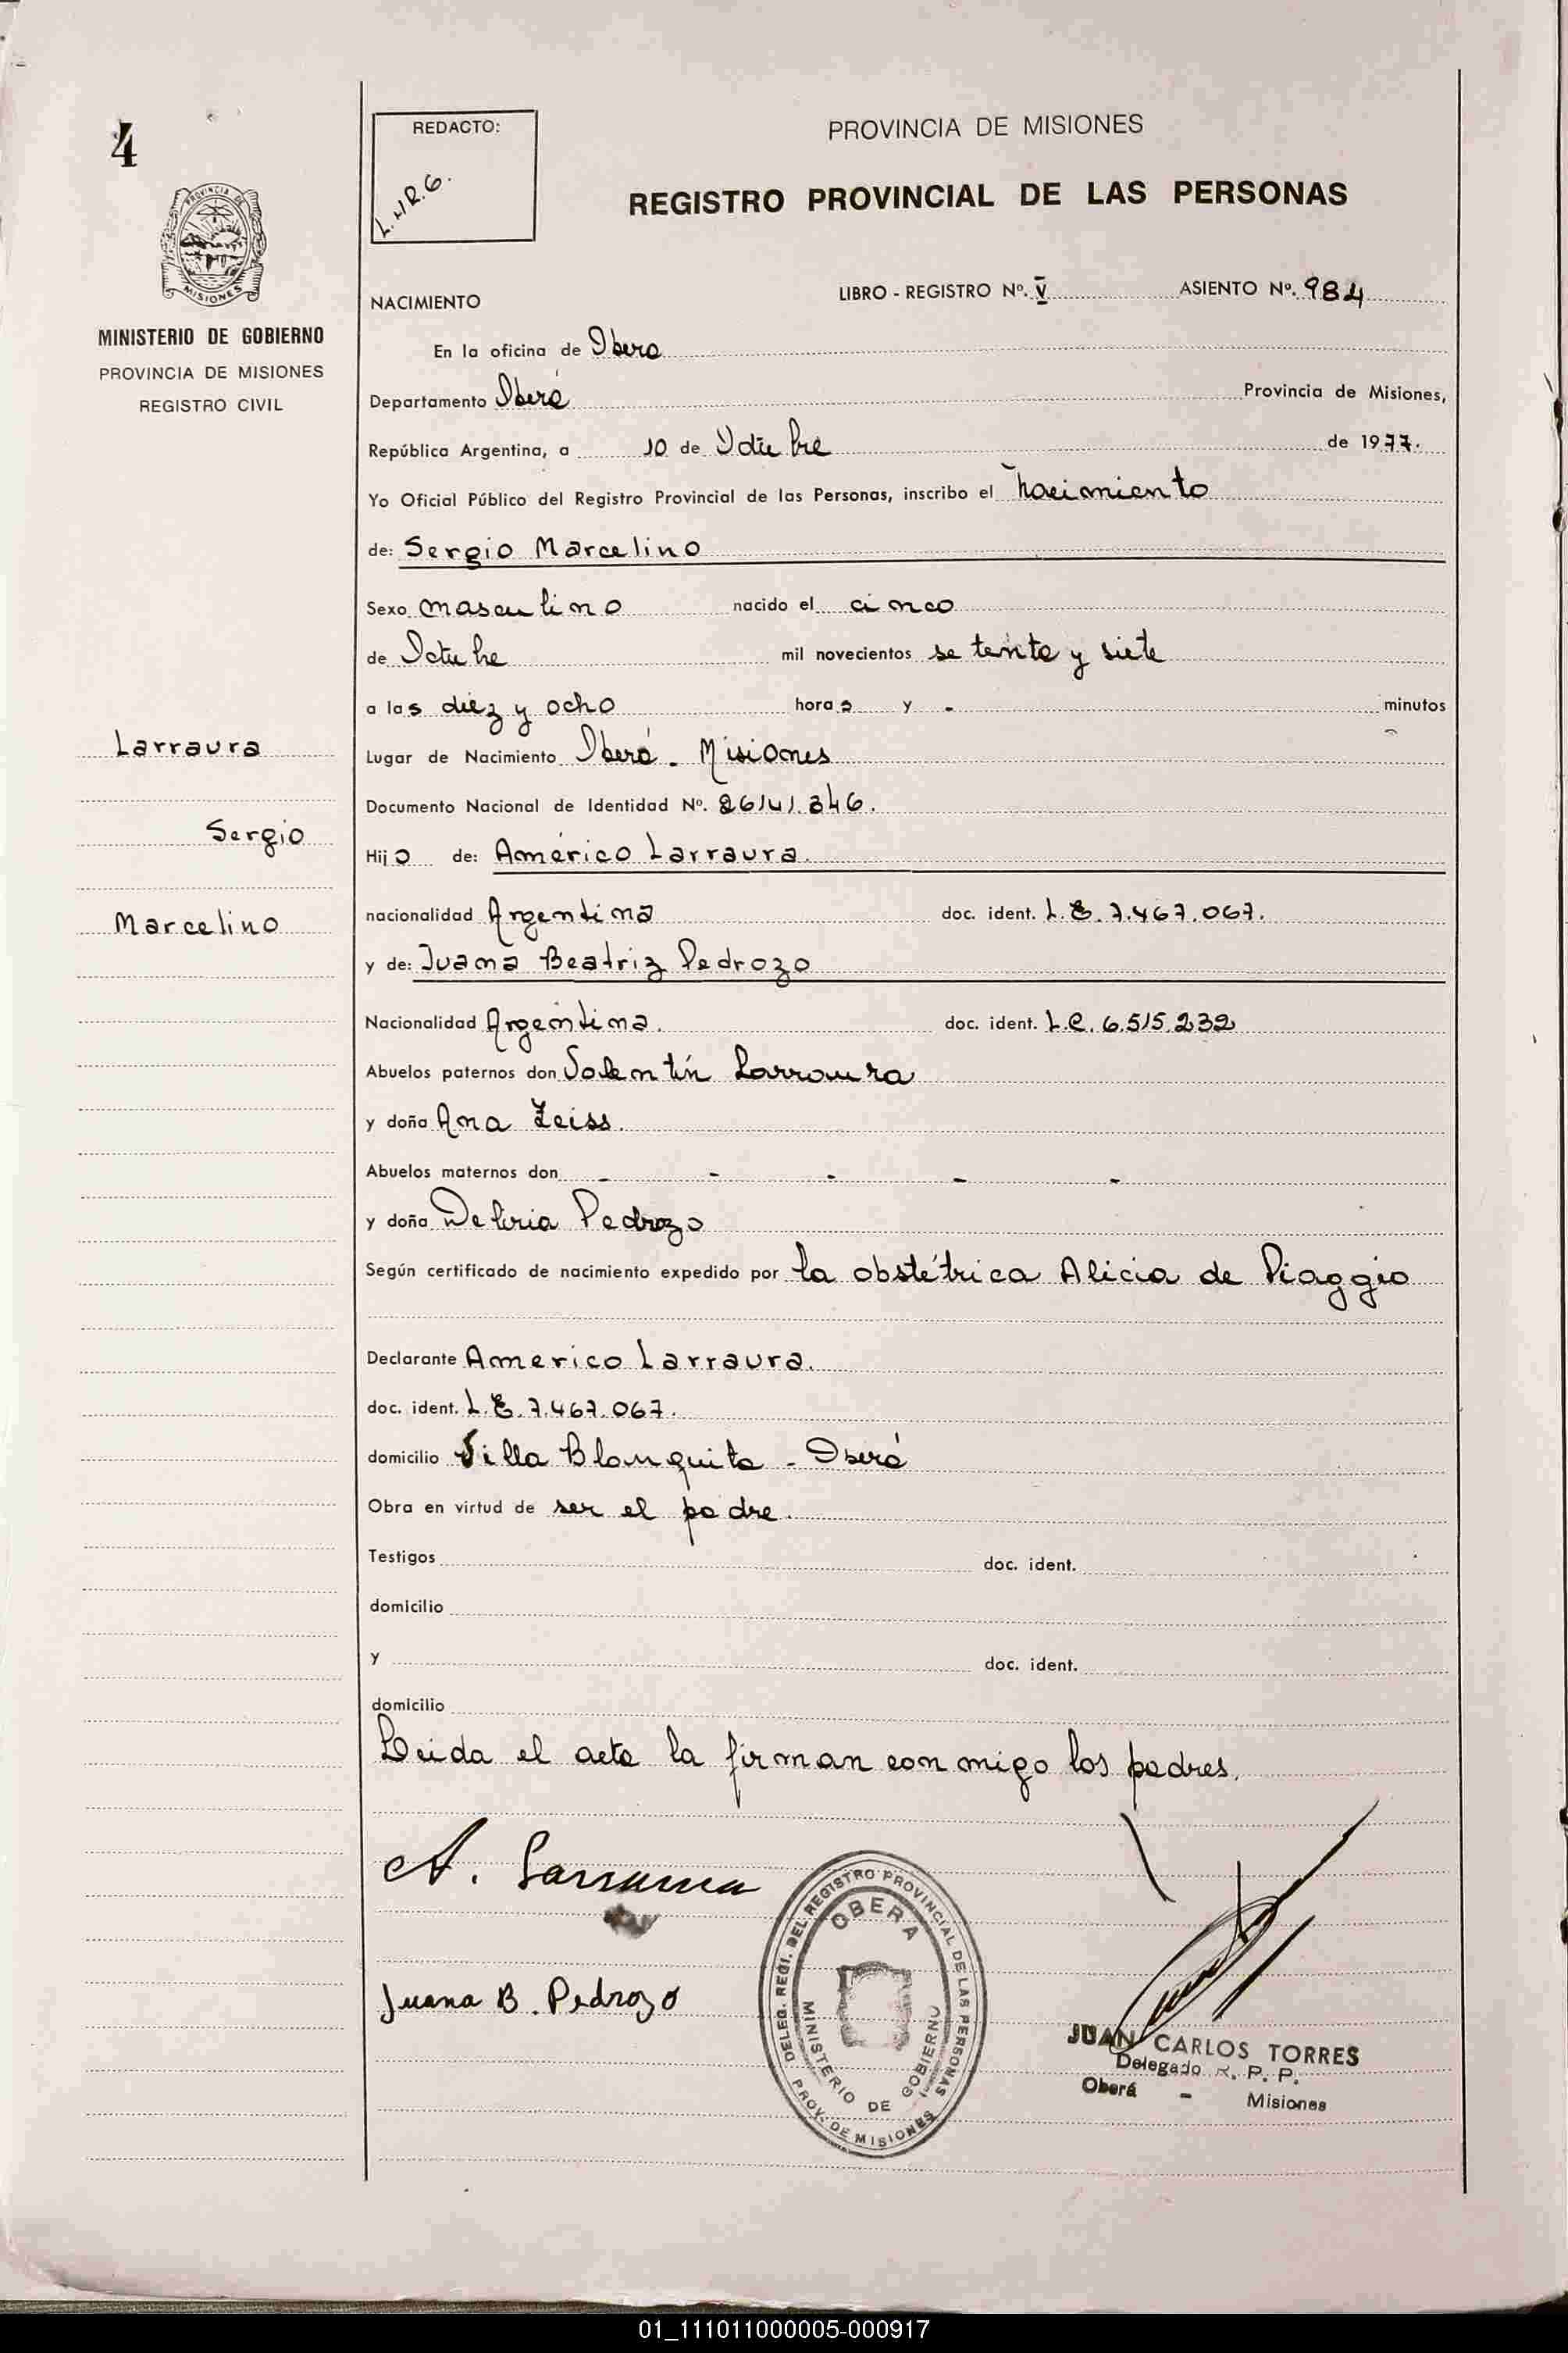 4
REDACTO:
L.H.R.G.
PROVINCIA DE MISIONES
REGISTRO PROVINCIAL DE LAS PERSONAS
PROVINCIA DE
MISIONES
MINISTERIO DE GOBIERNO
PROVINCIA DE MISIONES
REGISTRO CIVIL
NACIMIENTO
LIBRO - REGISTRO Nº. V ASIENTO Nº. 984
En la oficina de Oberá
Departamento Oberá Provincia de Misiones,
República Argentina, a 10 de Octubre de 1977.
Yo Oficial Público del Registro Provincial de las Personas, inscribo el nacimiento
de: Sergio Marcelino
Sexo masculino nacido el cinco
de Octubre mil novecientos setenta y siete
a las diez y ocho horas y - minutos
Larraura
Lugar de Nacimiento Oberá - Misiones
Documento Nacional de Identidad Nº. 26141.346.
Sergio
Hijo de: Américo Larraura.
Marcelino
nacionalidad Argentina doc. ident. L.E. 7.467.067.
y de: Juana Beatriz Pedrozo
Nacionalidad Argentina. doc. ident. L.C. 6.515.232
Abuelos paternos don Valentín Larraura
y doña Ana Zeiss.
Abuelos maternos don - - - - -
y doña Pedrozo
Según certificado de nacimiento expedido por la obstétrica Alicia de Piaggio
Declarante Americo Larraura.
doc. ident. L.E. 7.467.067.
domicilio Villa Blanquita - Oberá
Obra en virtud de ser el padre.
Testigos doc. ident.
domicilio
y doc. ident.
domicilio
Leida el acta la firman conmigo los padres.
A. Larraura
Juana B. Pedrozo
DELEG. REGI. DEL REGISTRO PROVINCIAL DE LAS PERSONAS
OBERA
MINISTERIO DE GOBIERNO
PROV. DE MISIONES
JUAN CARLOS TORRES
Delegado R. P. P.
Oberá - Misiones
01_111011000005-000917